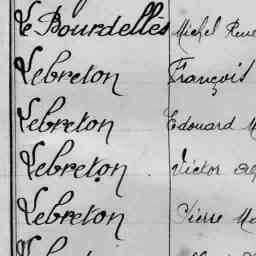 Le Bourdellès Michel René
Lebreton François
Lebreton Edouard M
Lebreton Victor
Lebreton Pierre Ma